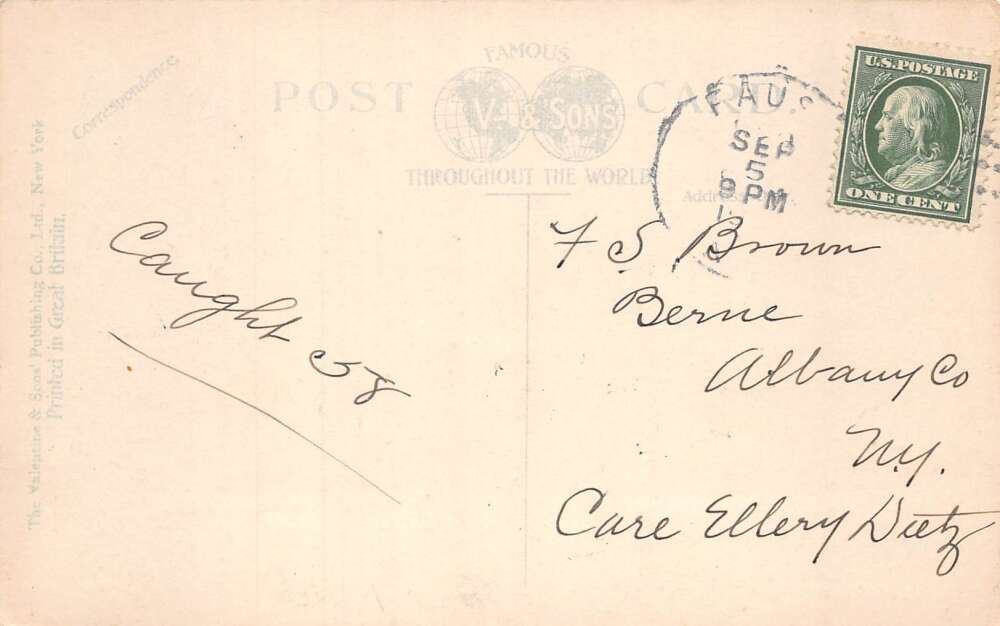 FAMOUS
POST CARD.
V. & SONS
THROUGHOUT THE WORLD
Correspondence.
Address
The Valentine & Sons' Publishing Co., Ltd., New York
Printed in Great Britain.
FAUS
SEP
5
9 PM
U.S. POSTAGE
ONE CENT
Caught 58
F S. Brown
Berne
Albany Co
N.Y.
Care Ellery Dietz